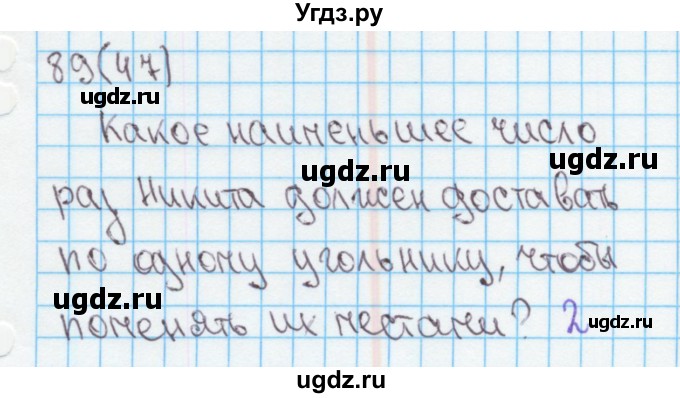 Угдз.ру
89(47)
ugdz.ru
Какое наименьшее число
ugdz.ru ugdz.ru
раз Никита должен доставать
по одному угольнику, чтобы
ugdz.ru ugdz.ru
поменять их местами? 2
ugdz.ru